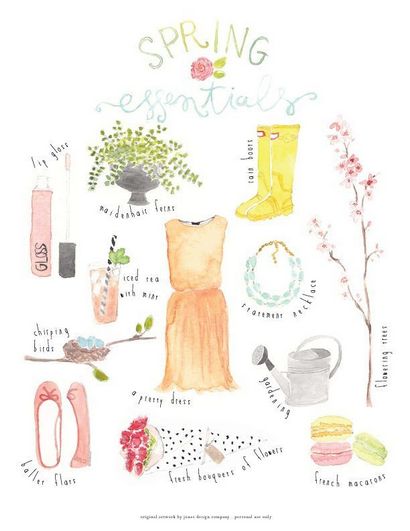 SPRING
essentials
lip gloss
GLOSS
maidenhair ferns
rain boots
iced tea
with mint
statement necklace
flowering trees
chirping
birds
a pretty dress
gardening
ballet flats
fresh bouquets of flowers
french macarons
original artwork by jones design company . personal use only